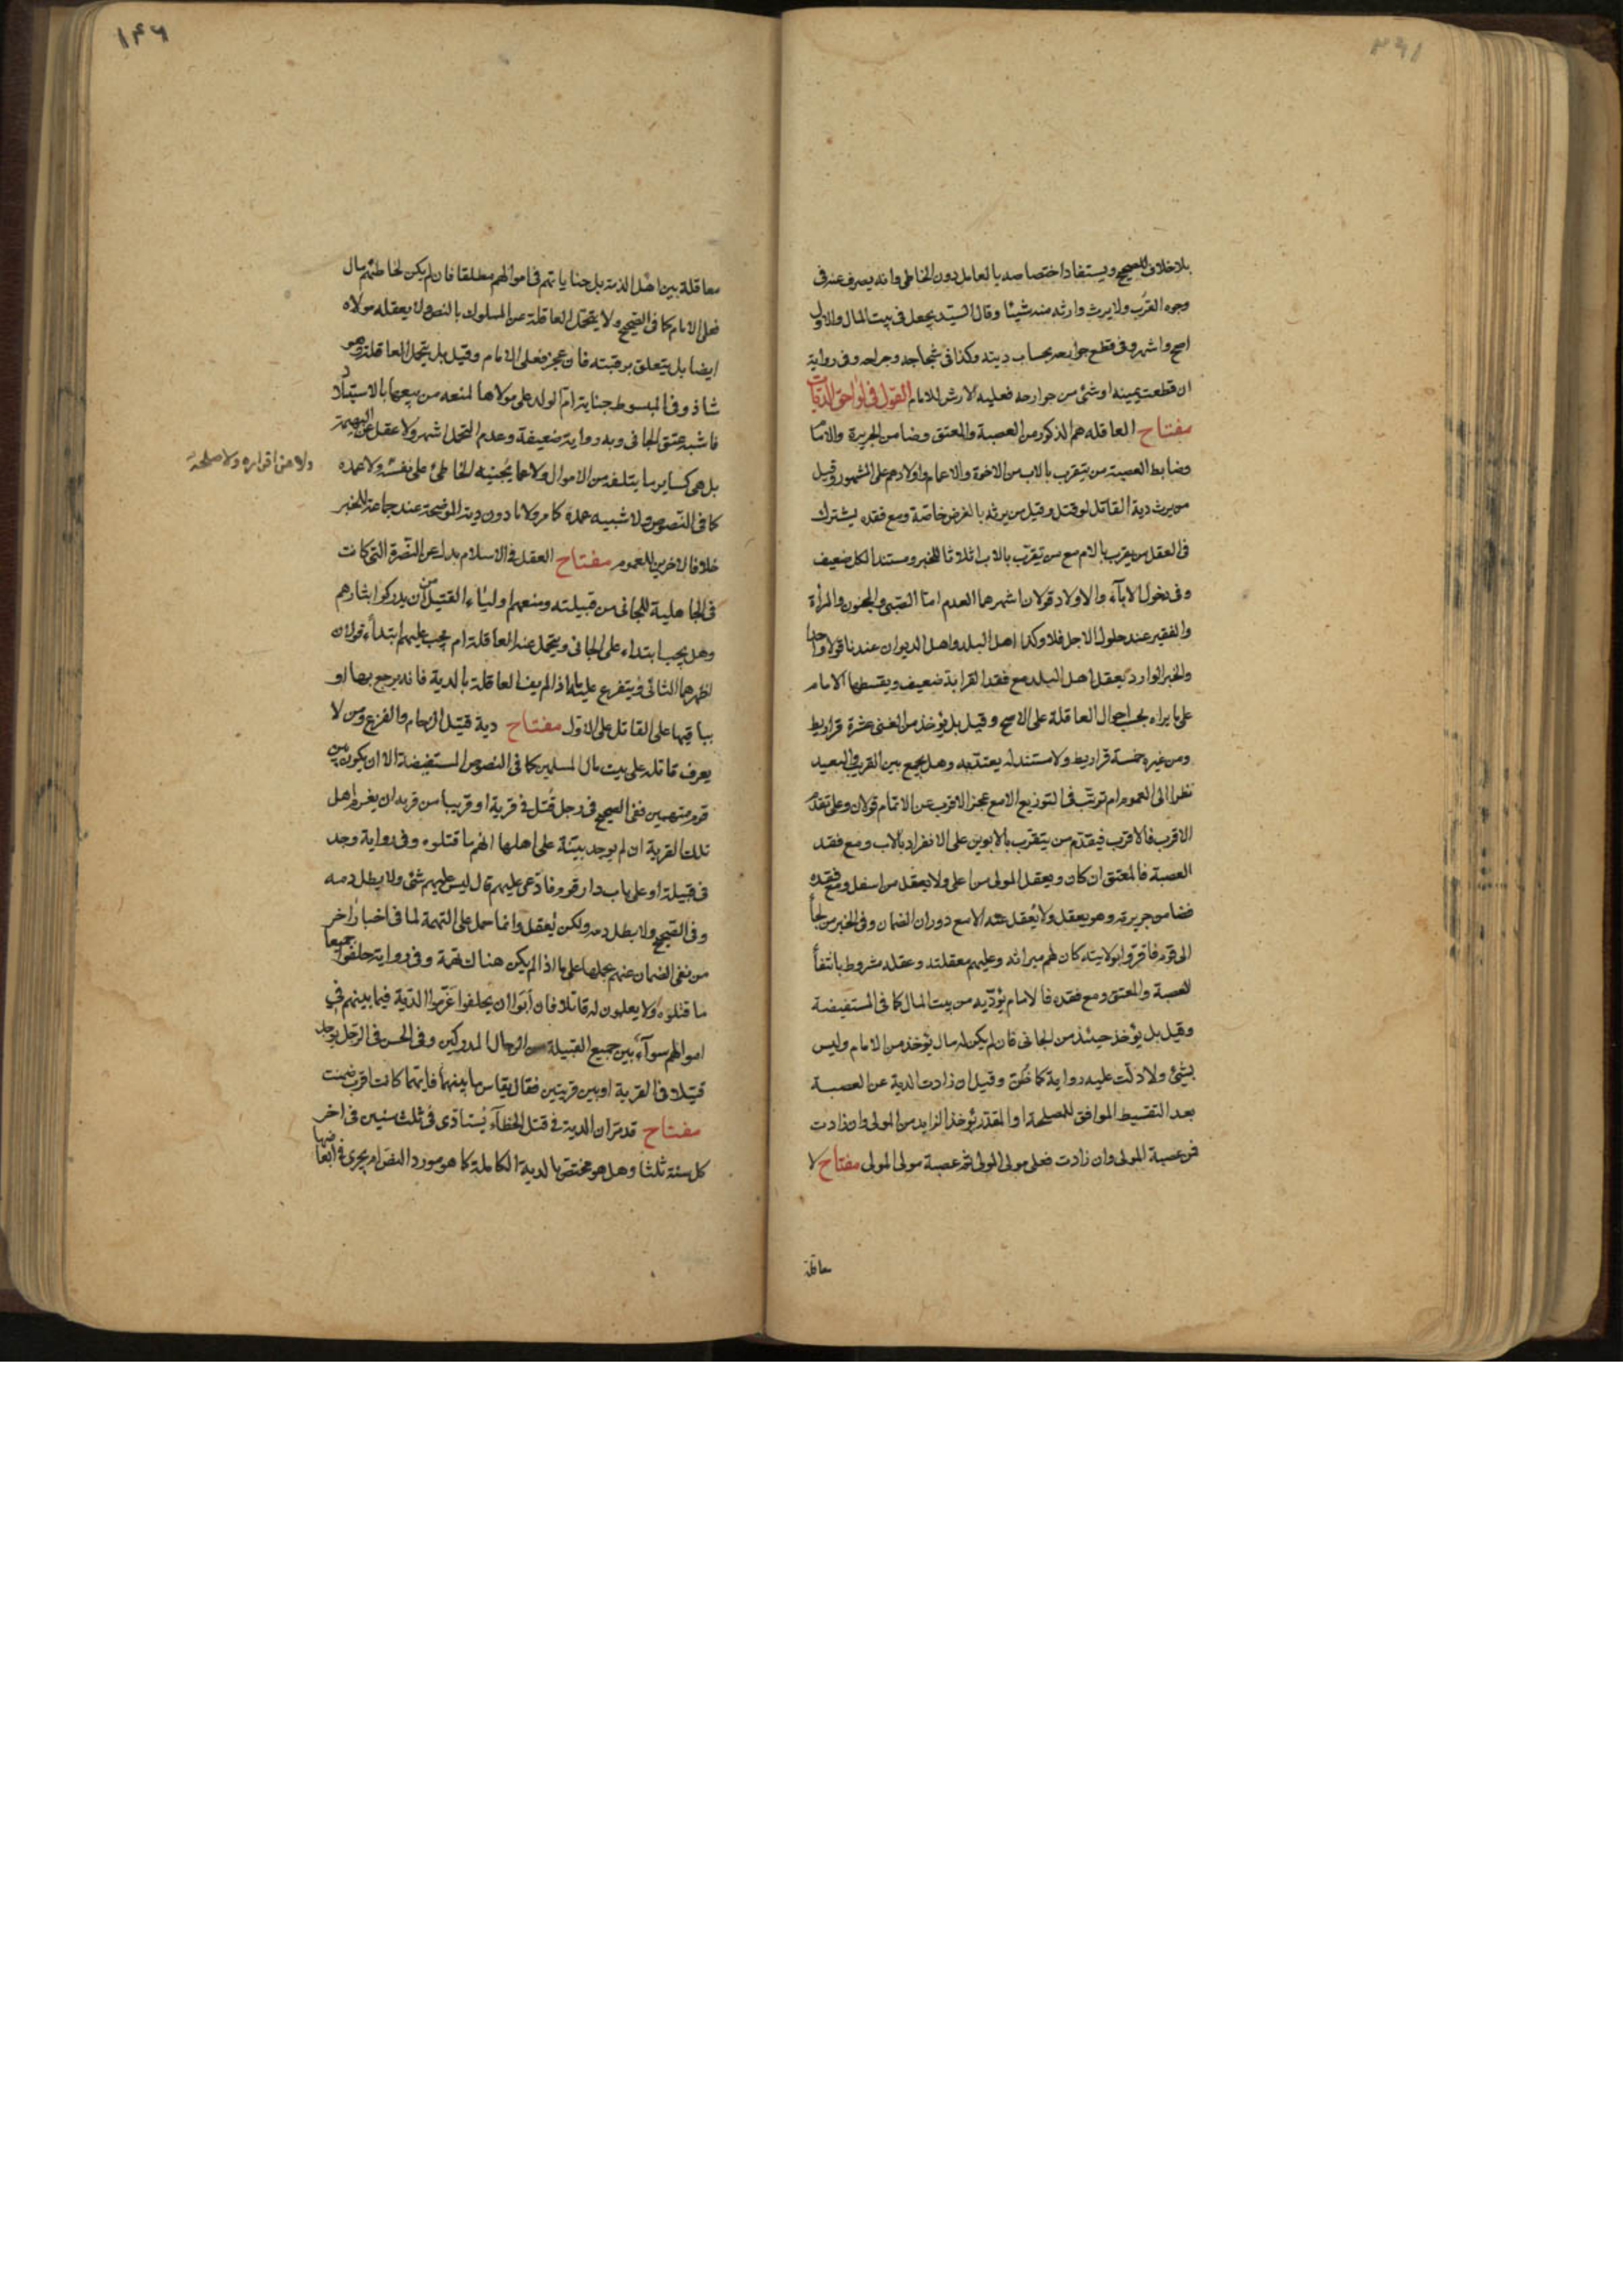 ٢٩١
بلا خلاف للصحيح ويستفاد اختصاصه بالعامل دون الخاطى وانه يصرف عنه فى
وجوه القرب ولا يرث وارثه منه شيئا وقال السيد يجعل فى بيت المال والاول
اصح واشهر وفى قطع جوارحه بحساب ديته وكذا فى شجاجه وجراحه وفى رواية
ان قطعت يمينه او شئ من جوارحه فعليه الارش للامام القول فى لواحق الديات
مفتاح العاقله هم الذكور من العصبة والمعتق وضامن الجريرة والامام
وضابط العصبة من يتقرب بالاب من الاخوة والاعمام واولادهم على المشهور وقيل
من يرث دية القاتل لو قتل وقيل من يرثه بالفرض خاصة ومع فقده يشترك
فى العقل من يتقرب بالام مع من يتقرب بالاب اثلاثا للخبر ومستند الكل ضعيف
وفى دخول الاباء والاولاد قولان اشهرهما العدم اما الصبى والمجنون والمرأة
والفقير عند حلول الاجل فلا وكذا اهل البلد واهل الديوان عندنا قولا واحدا
والخبر الوارد بعقل اهل البلد مع فقد القرابة ضعيف ويقسطها الامام
على ما يراه بحسب احوال العاقلة على الاصح وقيل بل يؤخذ من الغنى عشرة قراريط
ومن غيره خمسة قراريط ولا مستند له يعتد به وهل يجمع بين القريب والبعيد
نظرا الى العموم ام ترتب فى التوزيع الا مع عجز الاقرب عن الاتمام قولان وعلى تقدم
الاقرب فالاقرب فيقدم من يتقرب بالابوين على الانفراد بالاب ومع فقد
العصبة فالمعتق ان كان ويعقل المولى من اعلى ولا يعقل من اسفل ومع فقده
فضامن جريرته وهو يعقل ولا يعقل عنه الا مع دوران الضمان وفى الخبر من لجأ
الى قوم فاقروا بولايته كان لهم ميراثه وعليهم معقلته وعقله مشروط بانتفأ
العصبة والمعتق ومع فقده فالامام يؤديه من بيت المال كما فى المستفيضة
وقيل بل يؤخذ حينئذ من الجانى فان لم يكن له مال يؤخذ من الامام وليس
بشئ ولا دلت عليه رواية كما ظن وقيل ان زادت الدية عن العصبة
بعد التقسيط الموافق للمصلحة او المقدر يؤخذ الزايد من المولى وان زادت
فمن عصبة المولى وان زادت فعلى مولى المولى ثم عصبة مولى المولى مفتاح لا
معاقلة
١٤٦
معاقلة بين اهل الذمة بل جناياتهم فى اموالهم مطلقا فان لم يكن لخاطئهم مال
فعلى الامام كما فى الصحيح ولا يتحمل العاقلة عن المملوك بالنص ولا يعقله مولاه
ايضا بل يتعلق برقبته فان عجز فعلى الامام وقيل بل يتحمل العاقلة وهو
شاذ وفى المبسوط جناية ام الولد على مولاها لمنعه من بيعها بالاستيلاد
فاشبه عتق الجانى وبه رواية ضعيفة وعدم التحمل اشهر ولا عقل عن البهيمة
بل هى كساير ما يتلفه من الاموال ولا عما يجنيه الخاطئ على نفسه ولا عمده
ولا عن اقراره ولا صلحه
كما فى النصوص ولا شبيه عمده كما مر ولا ما دون دية الموضحة عند جماعة للخبر
خلافا لاخرين للعموم مفتاح العقل فى الاسلام بدل عن النصرة التى كانت
فى الجاهلية للجانى من قبيلته ومنعهم اولياء القتيل من ان يدركوا بثارهم
وهل يجب ابتداء على الجانى ويتحمل عنه العاقلة ام يجب عليهم ابتداء قولان
اظهرهما الثانى ويتفرع عليه ما اذا لم يف العاقلة بالدية فانه يرجع بها او
بباقيها على القاتل على الاول مفتاح دية قتيل الزحام والفزع ومن لا
يعرف قاتله على بيت مال المسلمين كما فى النصوص المستفيضة الا ان يكون بين
قوم متهمين ففى الصحيح فى رجل قتل فى قرية او قريبا من قرية ان يغرم اهل
تلك القرية ان لم يوجد بينة على اهلها انهم ما قتلوه وفى رواية وجد
فى قبيلة او على باب دار قوم فادعى عليهم قال ليس عليهم شئ ولا يطل دمه
وفى الصحيح ولا يطل دمه ولكن يعقل وانما حمل على التهمة لما فى اخبار اخر
من نفى الضمان عنهم بحملها على ما اذا لم يكن هناك تهمة وفى رواية حلفوا جميعا
ما قتلوه ولا يعلمون له قاتلا فان أبوا ان يحلفوا غرموا الدية فيما بينهم فى
اموالهم سوآء بين جميع القبيلة من الرجال المدركين وفى الحسن فى الرجل يوجد
قتيلا فى القرية او بين قريتين فقال يقاس ما بينهما فايتهما كانت اقرب ضمنت
مفتاح قد مر ان الدية فى قتل الخطآء يستادى فى ثلث سنين فى اخر
كل سنة ثلثا وهل هو مختص بالدية الكاملة كما هو مورد النص ام يجرى فى ابعاضها